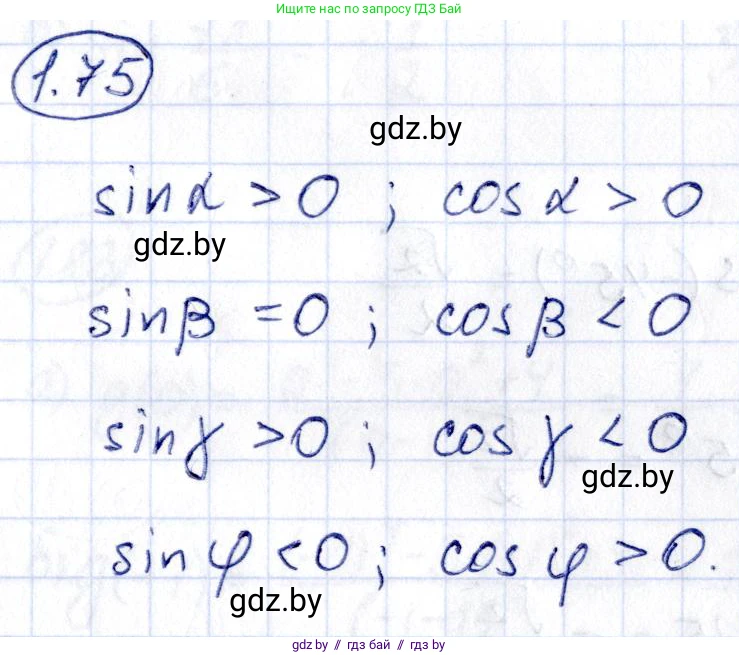 Ищите нас по запросу ГДЗ Бай
1.75
gdz.by
sin α > 0 ; cos α > 0
gdz.by
sin β = 0 ; cos β < 0
sin γ > 0 ; cos γ < 0
gdz.by
sin φ < 0 ; cos φ > 0.
gdz.by
gdz.by // гдз бай // гдз by